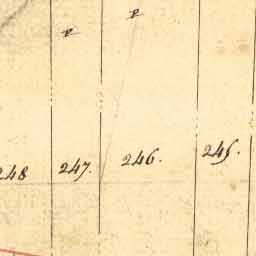 P P
248 247. 246. 245.